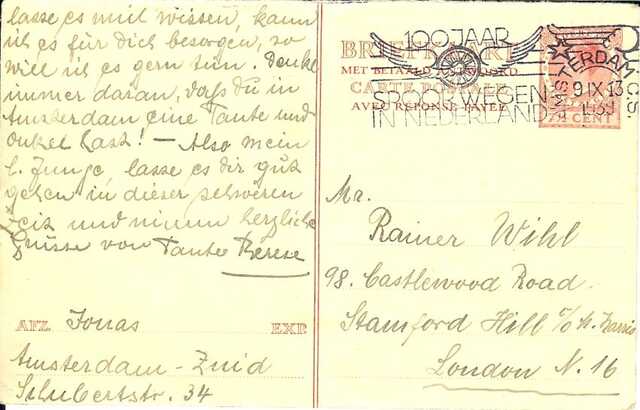 lasse es mich wissen, kann
ich es für dich besorgen, so
will ich es gern tun. Denke
immer daran, daß du in
Amsterdam eine Tante und
Onkel hast! — Also mein
l. Junge, lasse es dir gut
gehen in dieser schweren
Zeit und nimm herzliche
Grüsse von Tante Therese
AFZ. Jonas EXP.
Amsterdam-Zuid
Schubertstr. 34
BRIEFKAART
MET BETAALD ANTWOORD
CARTE POSTALE
AVEC RÉPONSE PAYÉE
100 JAAR
SPOORWEGEN
IN NEDERLAND
AMSTERDAM C.S.
9 IX 13
1939
7½ CENT
Mr.
Rainer Wihl
98. Castlewood Road.
Stamford Hill c/o Mr. Harris
London N. 16